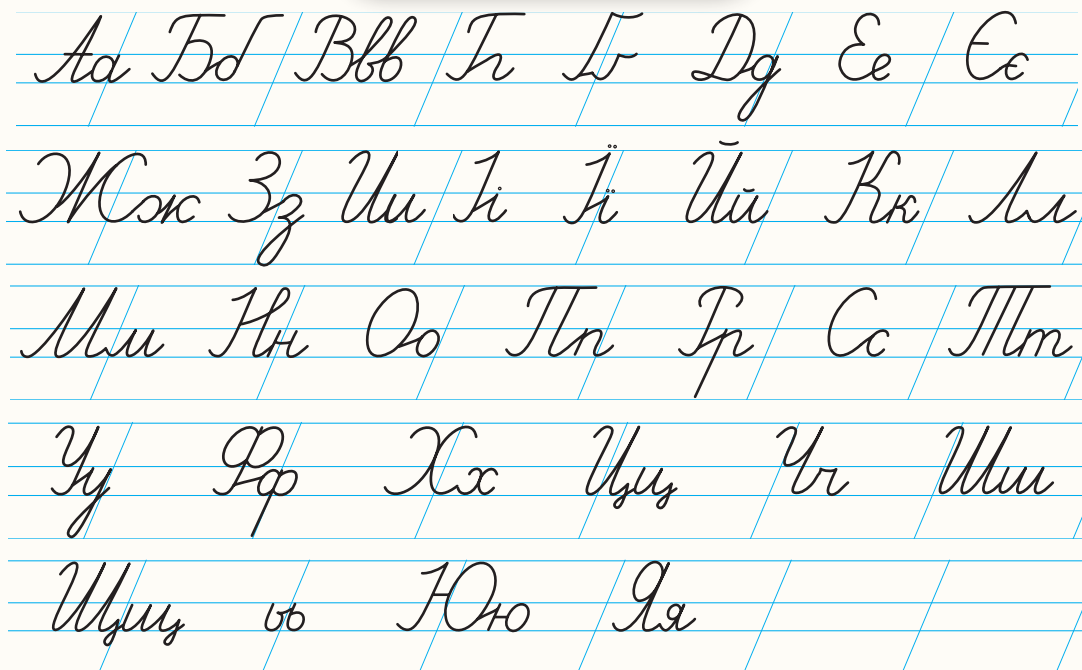 Аа Бб Ввв Гг Ґґ Дд Ее Єє
Жж Зз Ии Іі Її Йй Кк Лл
Мм Нн Оо Пп Рр Сс Тт
Уу Фф Хх Цц Чч Шш
Щщ ьь Юю Яя